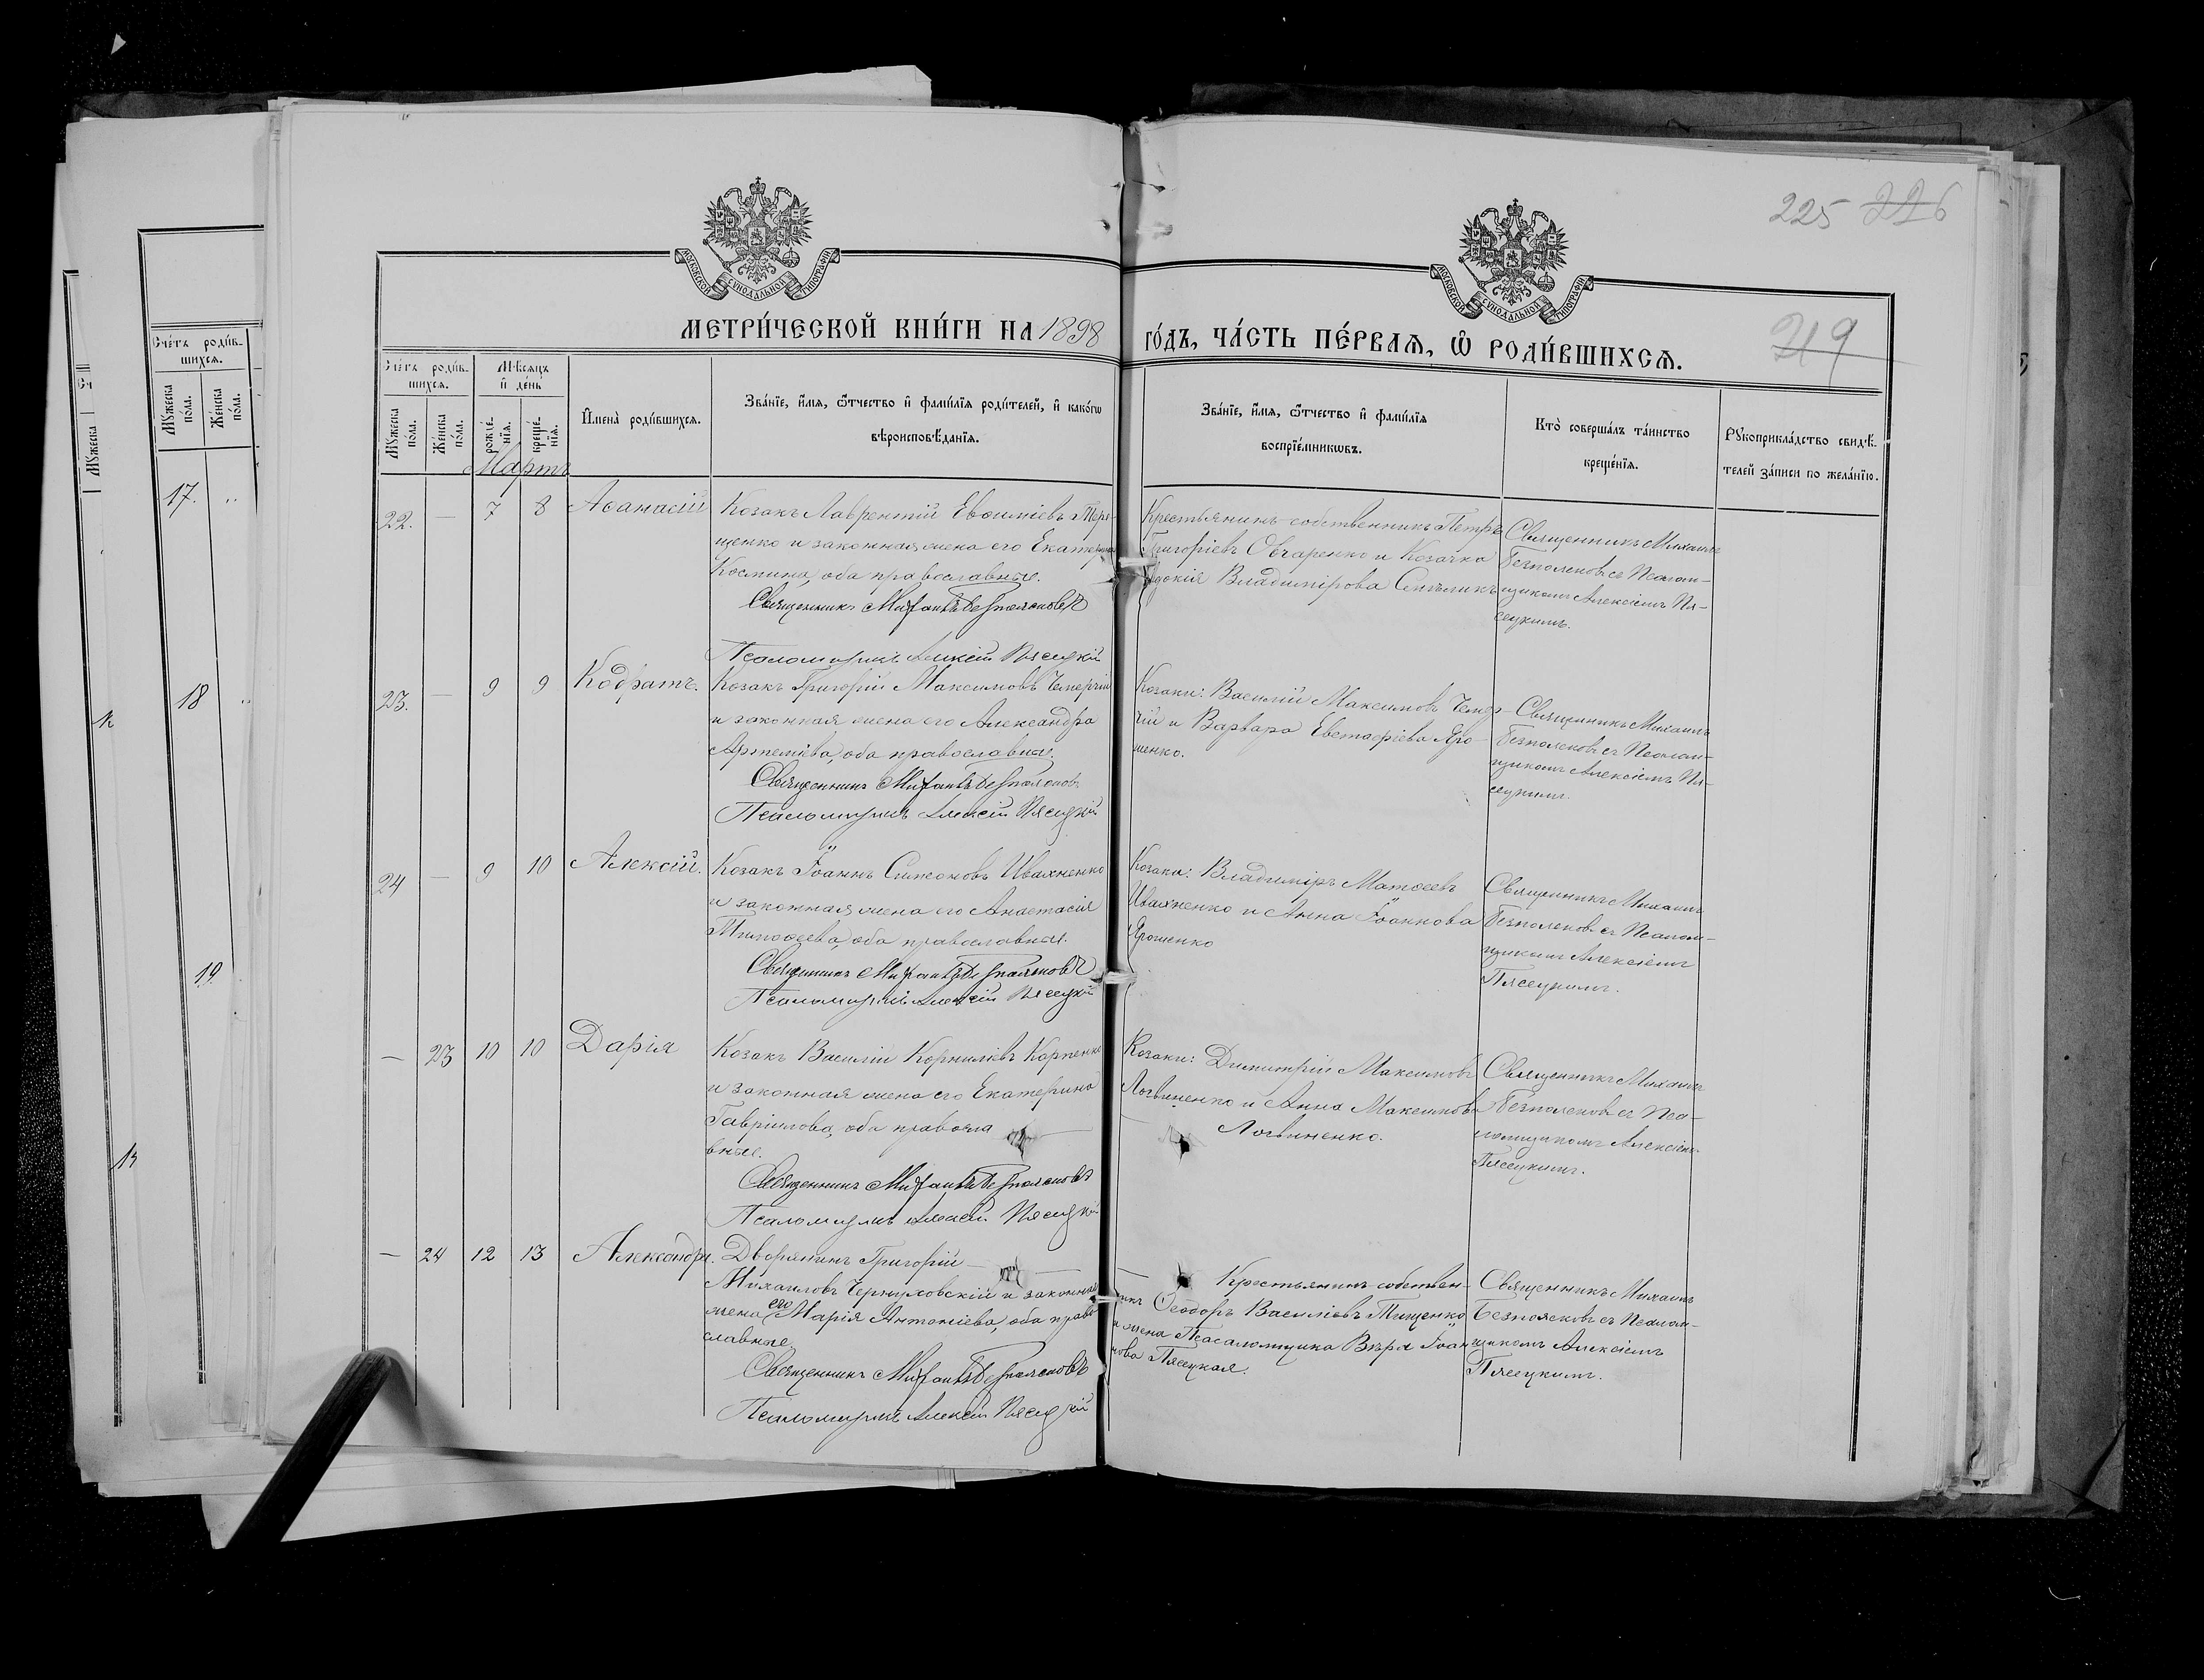 225 226
219
МЕТРИ́ЧЕСКОЙ КНИ́ГИ НА 1898 ГО́ДЪ, ЧА́СТЬ ПЕ́РВАѦ, Ѡ҆ РОДИ́ВШИХСѦ.
МОСКОВСКОЙ СѴНОДАЛЬНОЙ ТИПОГРАФІИ
МОСКОВСКОЙ СѴНОДАЛЬНОЙ ТИПОГРАФІИ
Сче́тъ роди́в-
шихсѧ.
Мꙋ́жеска
по́ла.
Же́нска
по́ла.
Мѣ́сѧцъ
и҆ де́нь
рожде́-
нїѧ.
креще́-
нїѧ.
И҆мена̀ роди́вшихсѧ.
Зва́нїе, и҆́мѧ, ѻ҆́тчество и҆ фами́лїѧ роди́телей, и҆ како́гѡ
вѣроисповѣ́данїѧ.
Зва́нїе, и҆́мѧ, ѻ҆́тчество и҆ фами́лїѧ
воспрїе́мникѡвъ.
Кто̀ соверша́лъ та́инство
креще́нїѧ.
Рꙋкоприкла́дство свидѣ́-
телей за́писи по жела́нїю.
Мартъ
22. — 7 8 Аѳанасій
Козакъ Лаврентій Евѳиміевъ Тере-
щенко и законная жена его Екатерина
Космина, оба православные.
Священникъ Михаилъ Безпоясковъ
Псаломщикъ Алексій Пясецкій
Крестьянинъ-собственникъ Петръ
Григоріевъ Овчаренко и Козачка
Владимірова
Священникъ Михаилъ
Безпоясковъ съ Псалом-
щикомъ Алексіемъ Пя-
сецкимъ.
23. — 9 9 Кодратъ.
Козакъ Григорій Максимовъ Чемерчій
и законная жена его Александра
Артеміева, оба православные.
Священникъ Михаилъ Безпоясковъ
Псаломщикъ Алексій Пясецкій
Козаки: Василій Максимовъ Чемер-
чій и Варвара Евстафіева Яро-
шенко.
Священникъ Михаилъ
Безпоясковъ съ Псалом-
щикомъ Алексіемъ Пя-
сецкимъ.
24 — 9 10 Алексій.
Козакъ Іоаннъ Симеоновъ Ивахненко
и законная жена его Анастасія
Тимоѳеева, оба православные.
Священникъ Михаилъ Безпоясковъ
Псаломщикъ Алексій Пясецкій
Козаки: Владиміръ Матѳеевъ
Ивахненко и Анна Іоаннова
Ярошенко
Священникъ Михаилъ
Безпоясковъ съ Псалом-
щикомъ Алексіемъ
Пясецкимъ.
— 23 10 10 Дарія
Козакъ Василій Корниліевъ Карпенко
и законная жена его Екатерина
Гавріилова, оба правосла
вные.
Священникъ Михаилъ Безпоясковъ
Псаломщикъ Алексій Пясецкій
Козаки: Димитрій Максимовъ
Логвиненко и Анна Максимова
Логвиненко.
Священникъ Михаилъ
Безпоясковъ съ Пса-
ломщикомъ Алексіемъ
Пясецкимъ.
— 24 12 13 Александра.
Дворянинъ Григорій —
Михаиловъ и законная
жена его Марія Антоніева, оба право
славные
Священникъ Михаилъ Безпоясковъ
Псаломщикъ Алексій Пясецкій
— Крестьянинъ-собствен-
никъ Ѳеодоръ Василіевъ Тищенко
и жена Псаломщика Вѣра Іоан
нова Пясецкая.
Священникъ Михаилъ
Безпоясковъ съ Псалом-
щикомъ Алексіемъ
Пясецкимъ.
Сче́тъ роди́в-
шихсѧ.
Мꙋ́жеска
по́ла.
Же́нска
по́ла.
17.
18
19.
Мꙋ́жеска